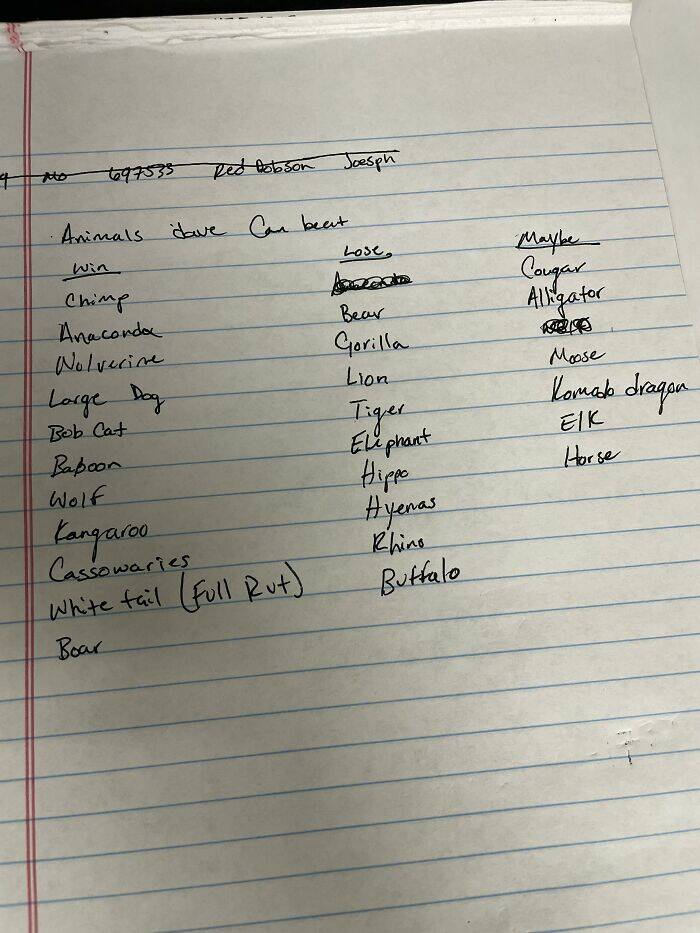 9 Mo 697535 Red Dobson Joesph
Animals Dave Can beat
Win Lose Maybe
Chimp Anaconda Cougar
Anaconda Bear Alligator
Wolverine Gorilla
Large Dog Lion Moose
Bob Cat Tiger Komodo dragon
Baboon Elephant Elk
Wolf Hippo Horse
Kangaroo Hyenas
Cassowaries Rhino
White tail (Full Rut) Buffalo
Boar